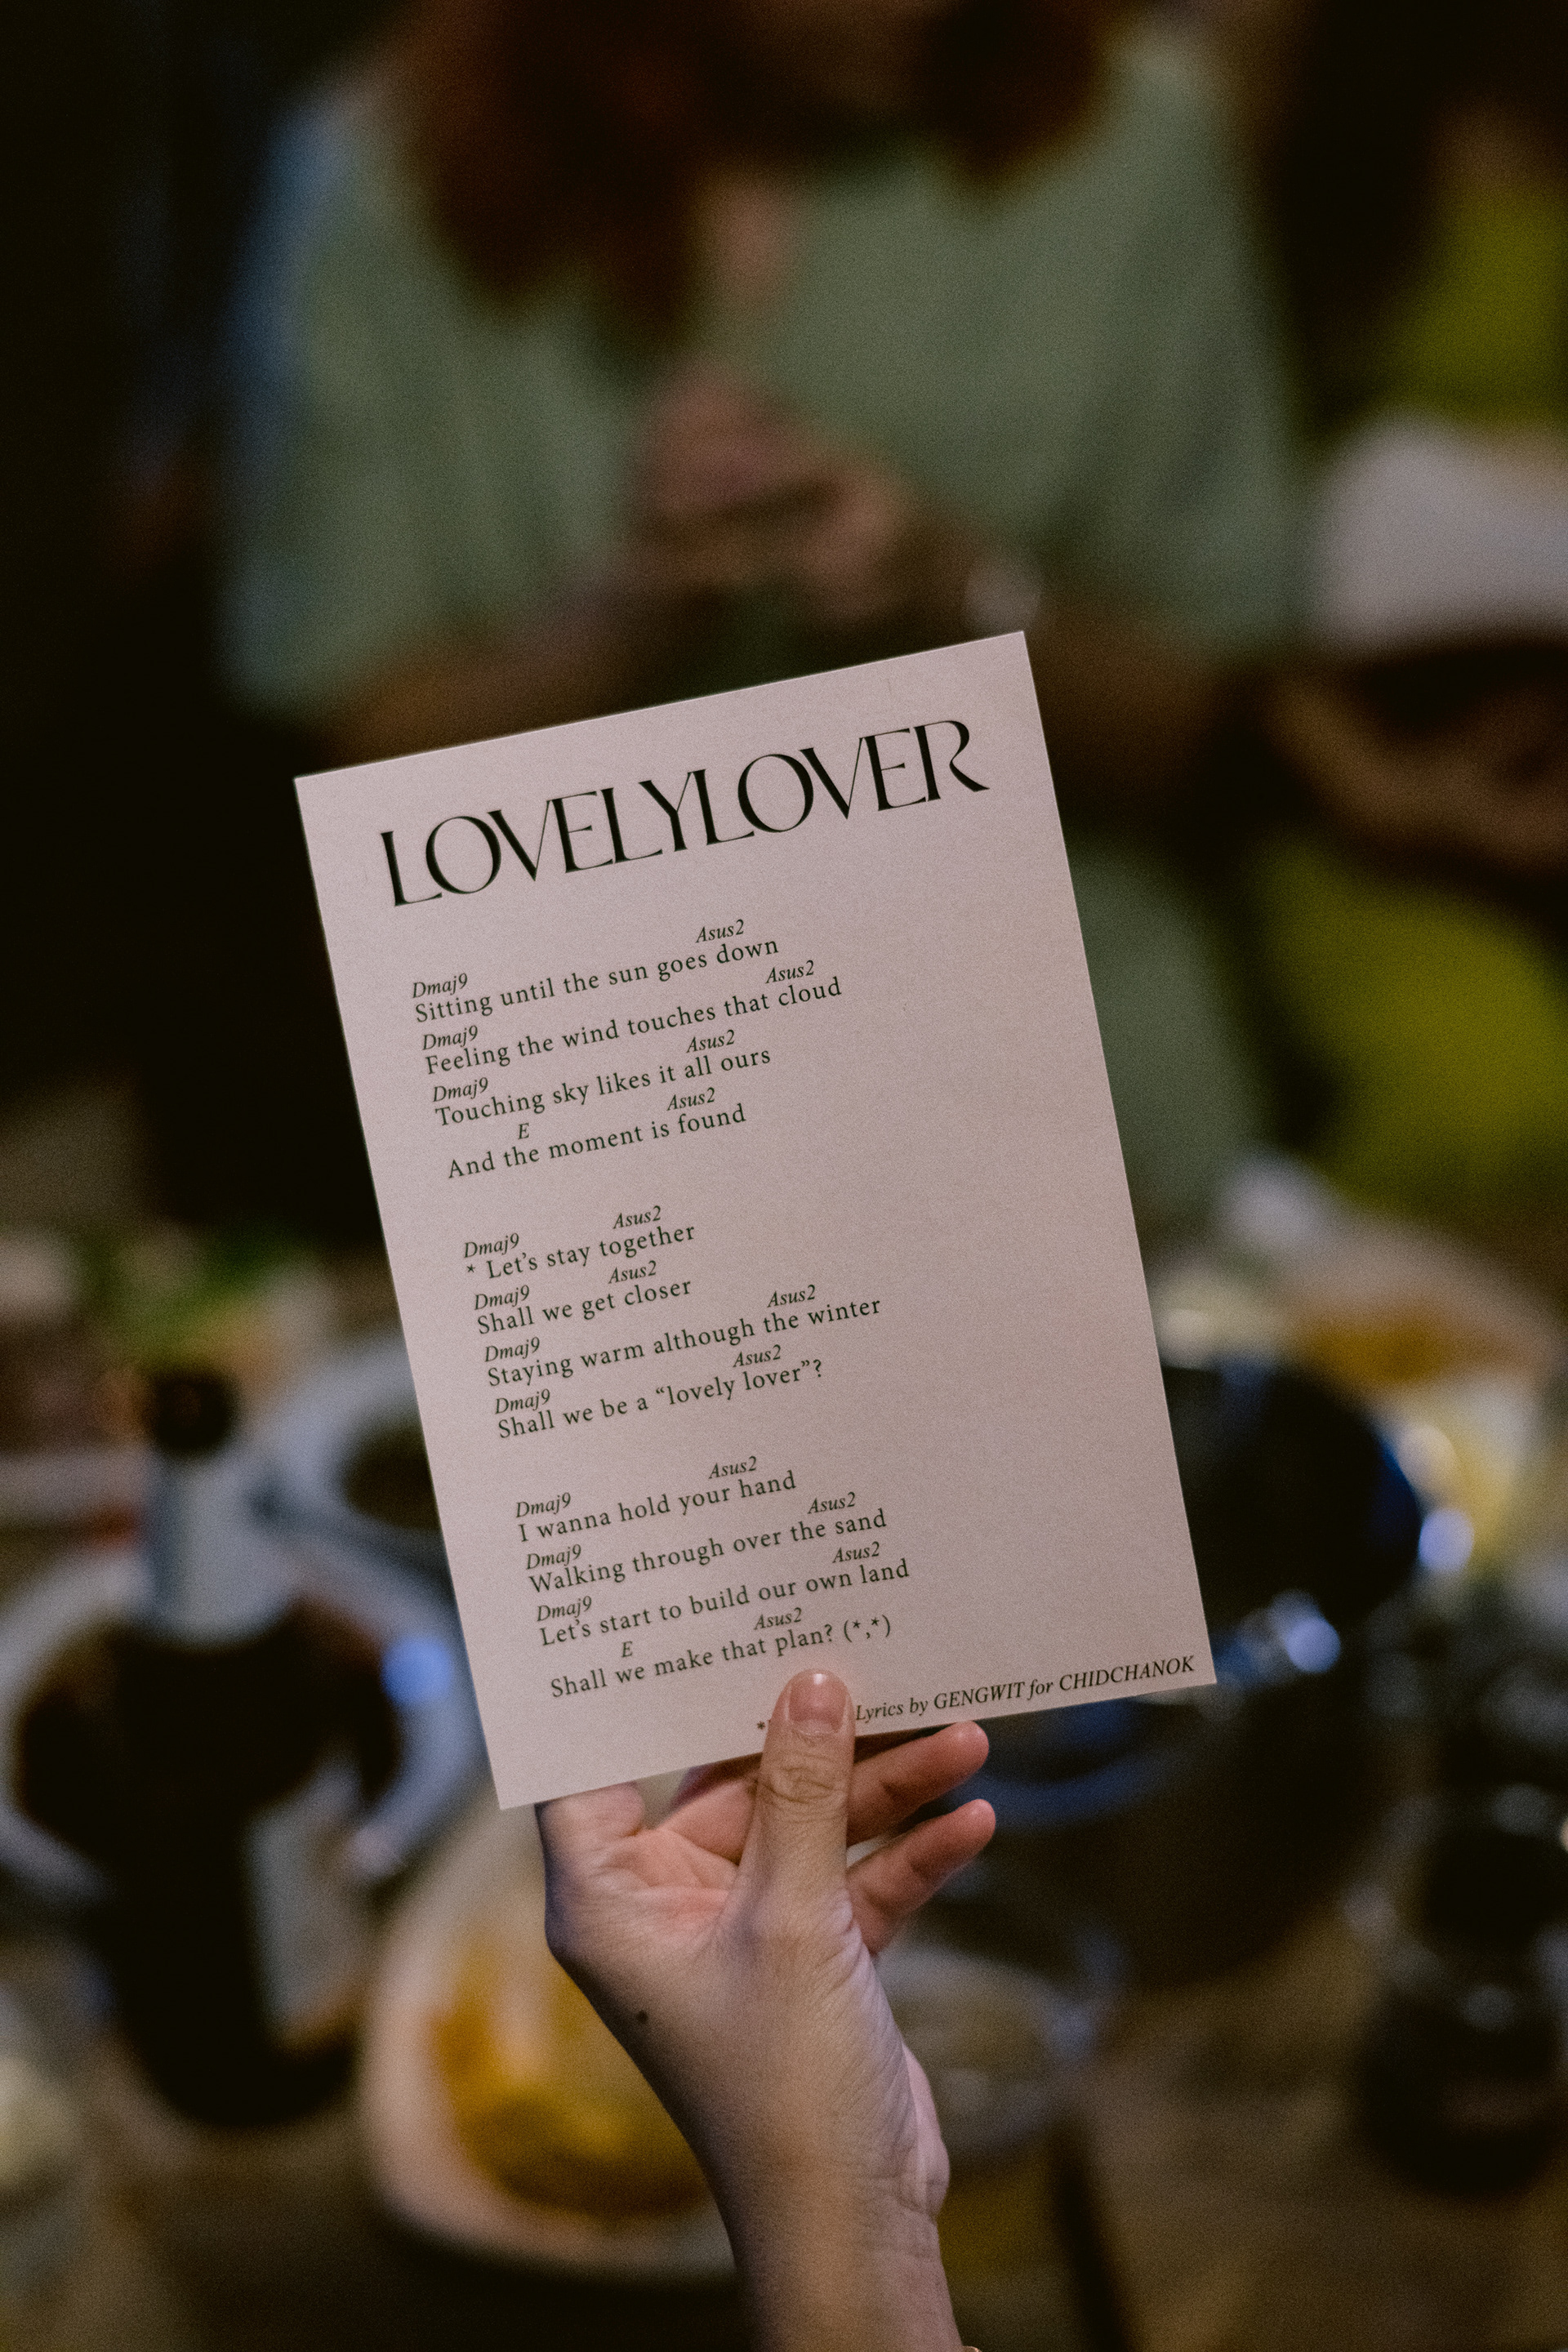 LOVELYLOVER
Dmaj9 Asus2
Sitting until the sun goes down
Dmaj9 Asus2
Feeling the wind touches that cloud
Dmaj9 Asus2
Touching sky likes it all ours
E Asus2
And the moment is found
Dmaj9 Asus2
* Let’s stay together
Dmaj9 Asus2
Shall we get closer
Dmaj9 Asus2
Staying warm although the winter
Dmaj9 Asus2
Shall we be a “lovely lover”?
Dmaj9 Asus2
I wanna hold your hand
Dmaj9 Asus2
Walking through over the sand
Dmaj9 Asus2
Let’s start to build our own land
E Asus2
Shall we make that plan? (*,*)
* Lyrics by GENGWIT for CHIDCHANOK